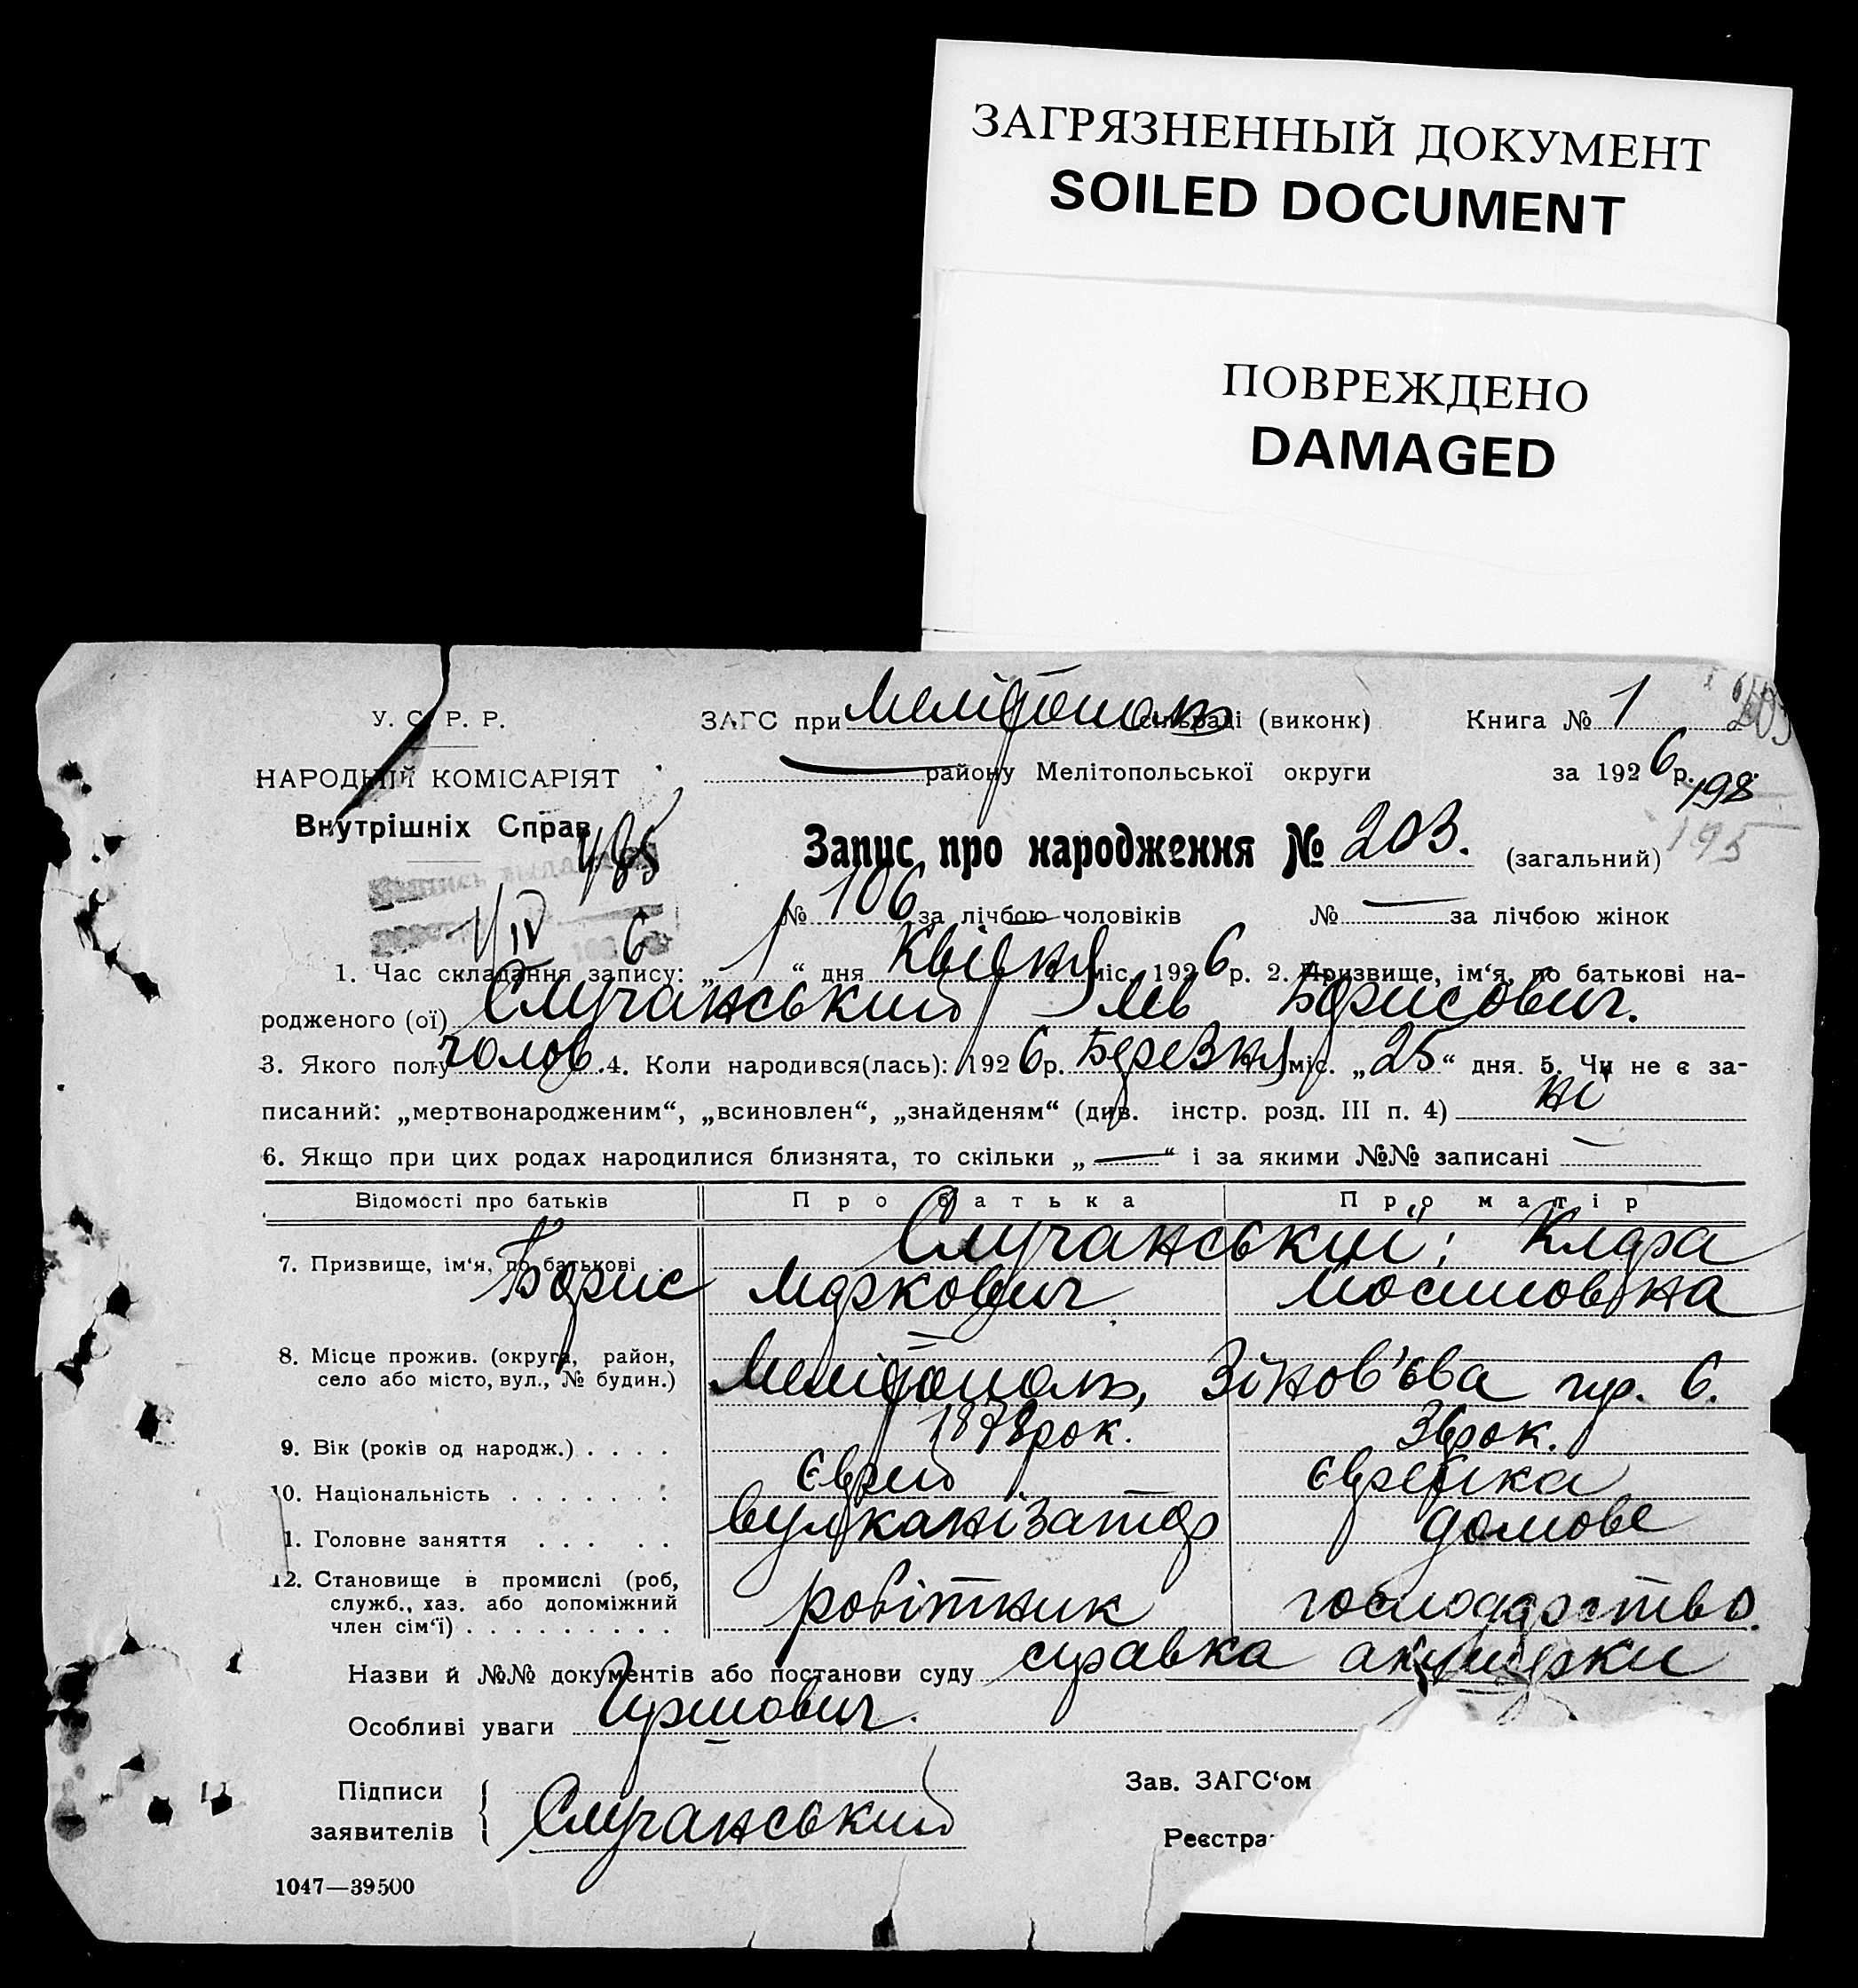 ЗАГРЯЗНЕННЫЙ ДОКУМЕНТ
SOILED DOCUMENT
ПОВРЕЖДЕНО
DAMAGED
У. С. Р. Р.
НАРОДНІЙ КОМІСАРІЯТ
Внутрішніх Справ
ЗАГС при Мелітополь сільраді (виконк)
Книга № 1
району Мелітопольської округи
за 1926 р.
198
195
Запис про народження № 203. (загальний)
485
1/IV 6
№ 106 за лічбою чоловіків № — за лічбою жінок
1. Час складання запису: „ 1 “ дня Квітня міс. 1926 р. 2. Призвище, ім‘я, по батькові на-
родженого (ої) Случанський Лев Борисович.
3. Якого полу чолов. 4. Коли народився(лась): 1926 р. Березня міс. „25“ дня. 5. Чи не є за-
писаний: „мертвонародженим“, „всиновлен“, „знайденям“ (див. інстр. розд. III п. 4) ні
6. Якщо при цих родах народилися близнята, то скільки „—“ і за якими №№ записані —
Відомості про батьків Про батька Про матір
7. Призвище, ім‘я, по батькові Случанські; Клара
Борис Маркович Йосиповна
8. Місце прожив. (округа, район,
село або місто, вул., № будин.) Мелітополь, Зінов'єва пр. 6.
9. Вік (років од народж.) . . . . 1878 рок. 36 рок.
10. Національність . . . . . . . Єврей Єврейка
1. Головне заняття . . . . . вулканізатор домове
12. Становище в промислі (роб,
служб., хаз. або допоміжний
член сім‘ї) . . . . . . . . . робітник господарство.
Назви й №№ документів або постанови суду справка акушерки
Особливі уваги Гуршович.
Підписи
заявителів { Случанський
Зав. ЗАГС‘ом
Реєстра
1047—39500